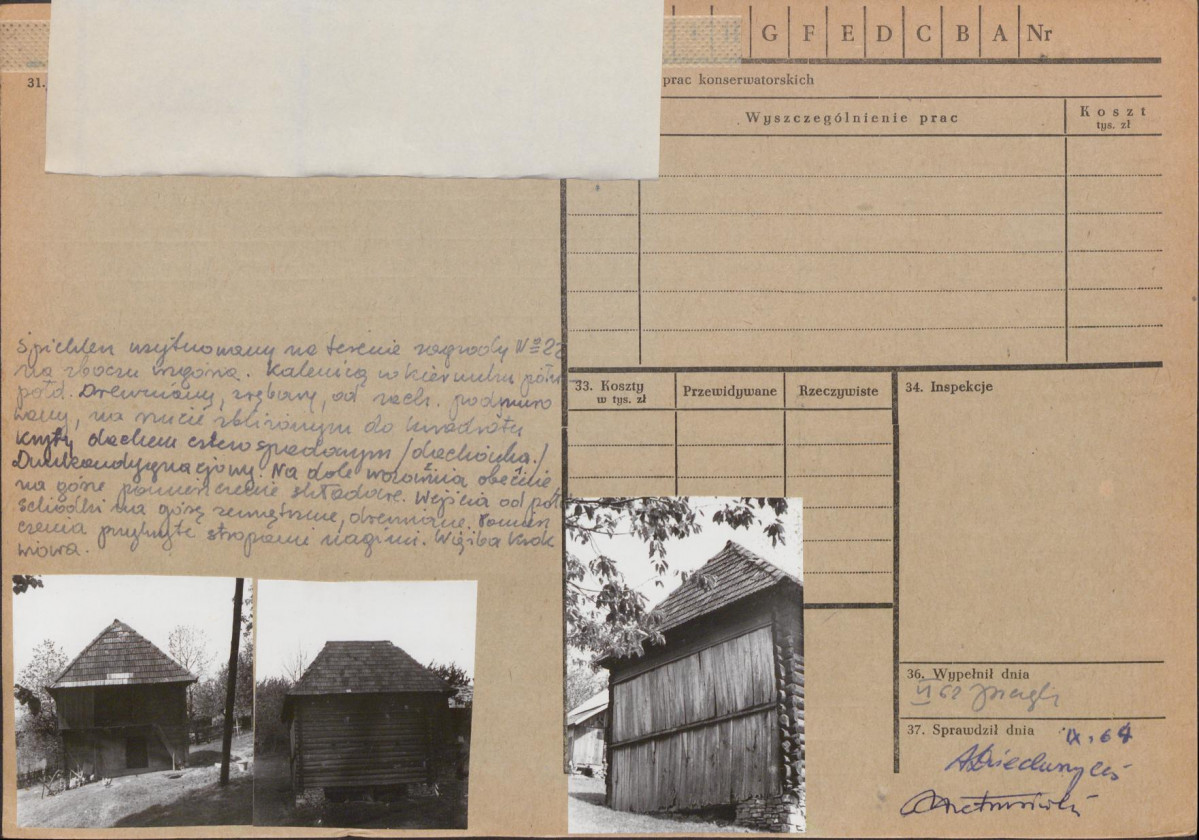 G F E D C B A Nr
31.
prac konserwatorskich
Wyszczególnienie prac
Koszt
tys. zł
Spichlerz usytuowany na terenie zagrody Nº 22
na zboczu wzgórza. Kalenicą w kierunku półn
połd. Drewniany, zrębowy, od zach. podmuro
wany, na rzucie zbliżonym do kwadratu
kryty dachem czterospadowym /dachówka./
Dwukondygnacjowy. Na dole wozownia obecnie
na górze pomieszczenie składowe. Wejścia od połd
schodki na górę zewnętrzne, drewniane. Pomiesz
czenia przykryte stropami nagimi. Więźba krok
wiowa.
33. Koszty
w tys. zł
Przewidywane
Rzeczywiste
34. Inspekcje
36. Wypełnił dnia
VI 62
37. Sprawdził dnia
IX. 64